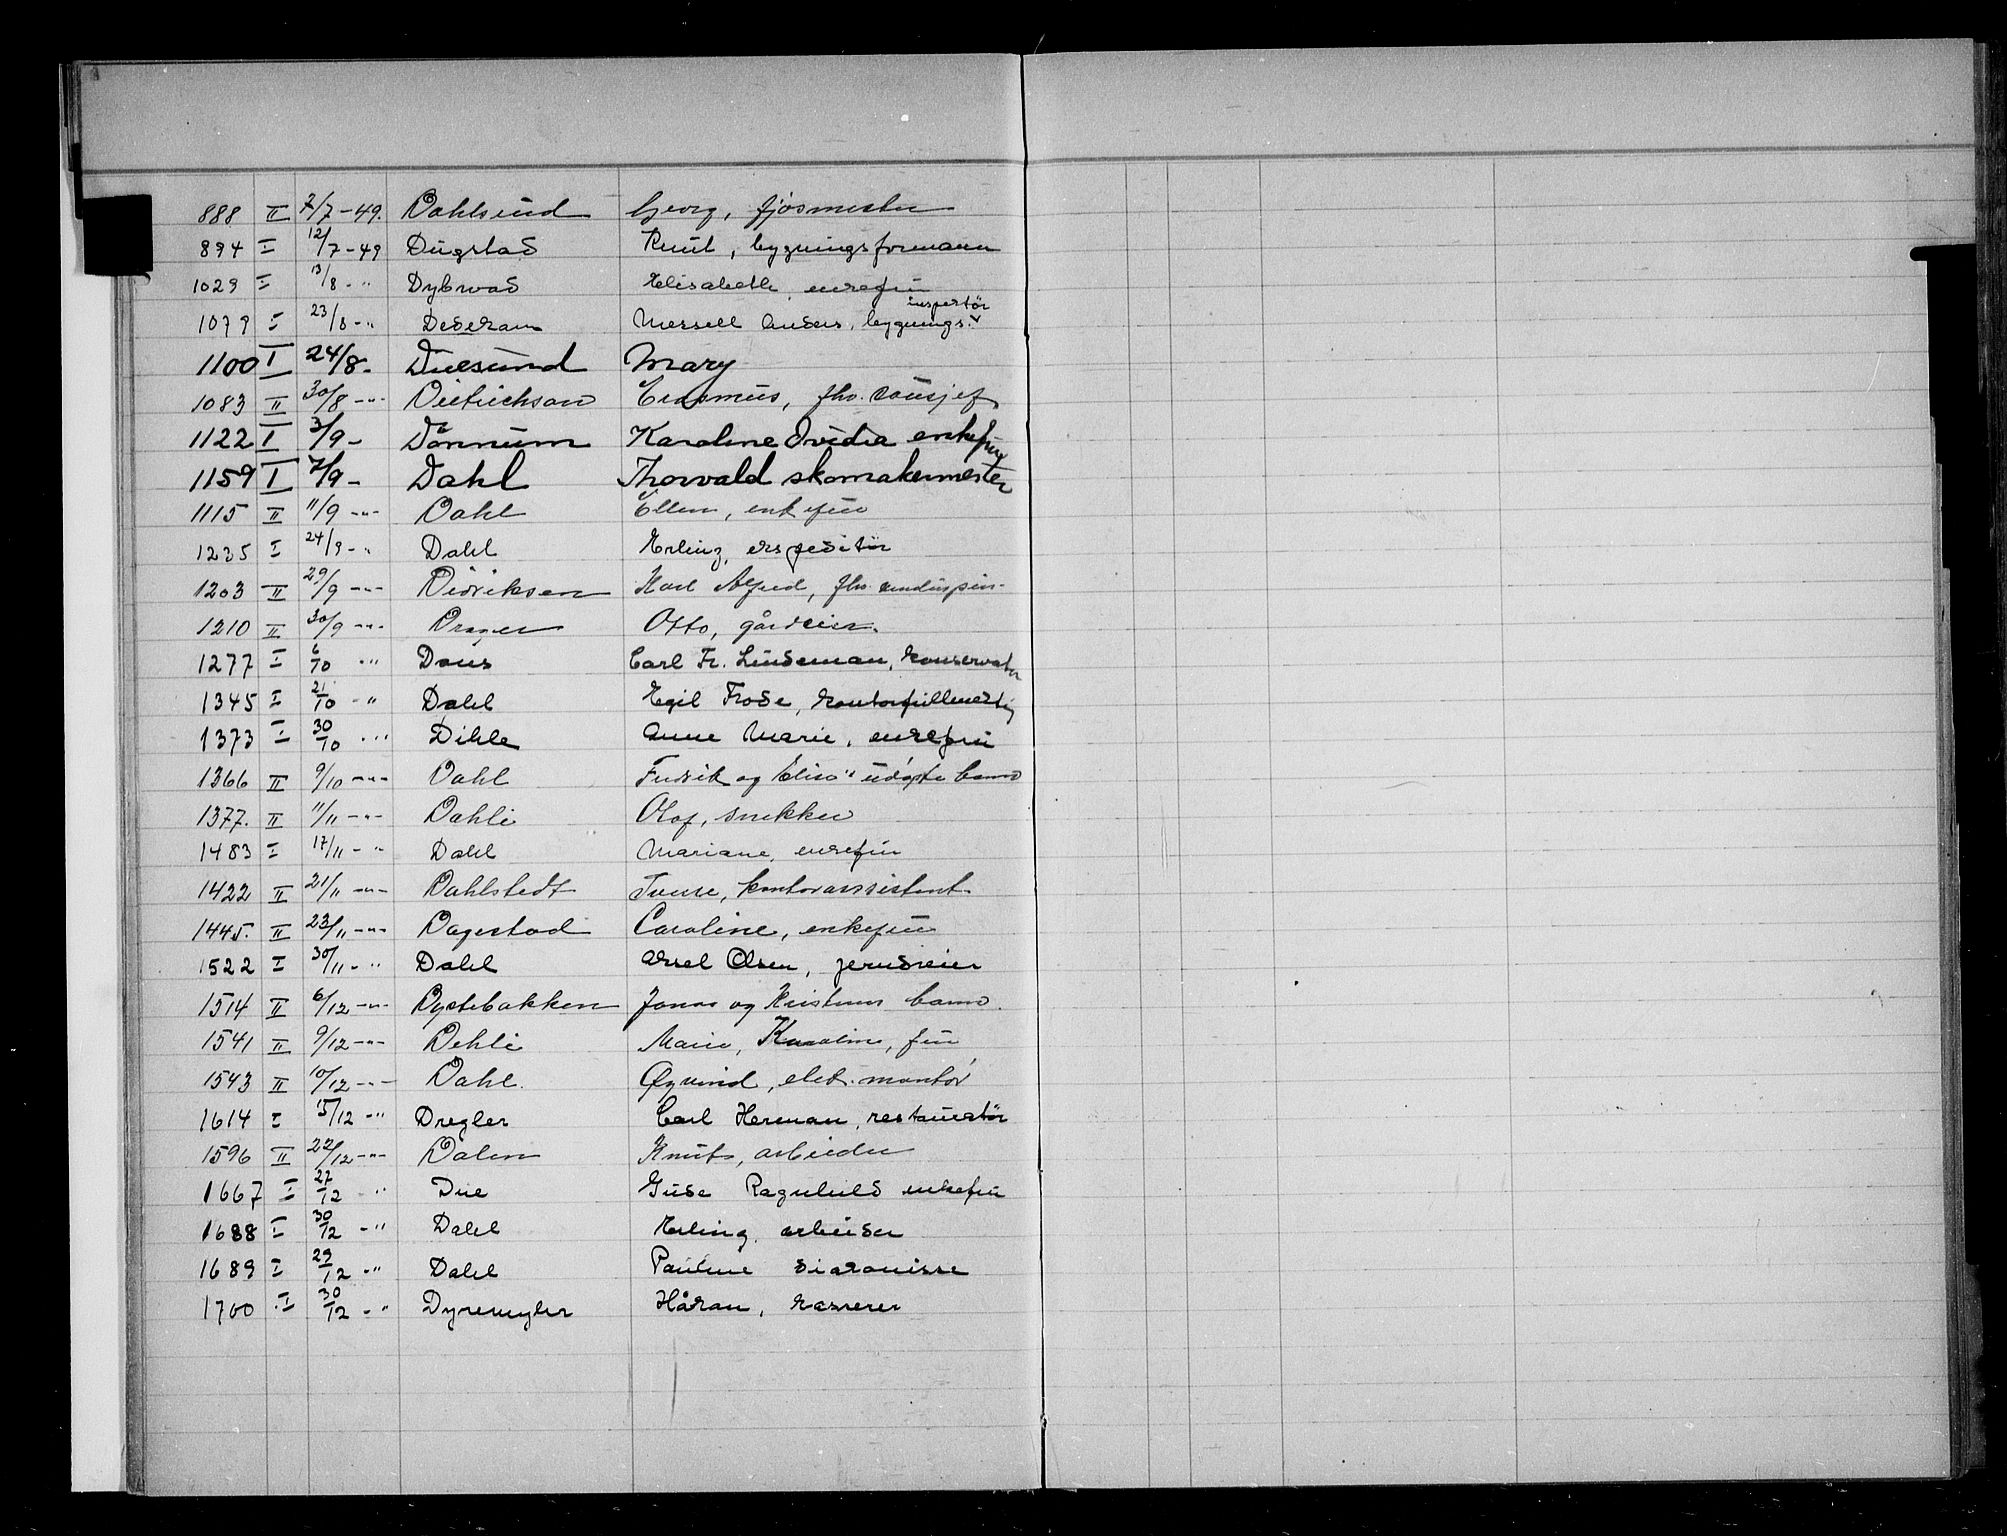 888 II 7/7 - 49. Dahlsund Georg, fjøsmester
894 I 12/7 - 49 Dugstad Knut, bygningsformann
1029 I 13/8 - " Dybwad Elisabeth enkefru
1079 I 23/8 - " Dedekam Anders, bygnings. inspektør
1100 I 24/8 - Duesund Mary
1083 II 30/8 - " - Dietrichson Erasmus, fhv.
1122 I 3/9 - Dönnum Karoline Ovidia enkefru
1159 I 7/9 - Dahl Thorvald skomakermester
1115 II 11/9 - " - Dahl Ellen, enkefru
1235 I 24/9 - " Dahl Erling, ekspeditør
1203 II 29/9 - " - Didriksen Karl Alfred, fhv.
1210 II 30/9 - " - Drager Otto, gårdeier.
1277 I 6/10 " Dons Carl Fr. Lindeman, konservator
1345 I 21/10 - " Dahl Egil Frode, kontorfullmektig
1373 I 30/10 - " Dihle Anne Marie, enkefru
1366 II 9/10 - " - Dahl Fredrik og Elisa's udøpte barn
1377. II 11/11 - " - Dahli Olaf, snekker
1483 I 17/11 - " Dahl Mariane, enkefru
1422 II 21/11 - " - Dahlstedt kontorassistent
1445. II 23/11 - " - Dagestad Caroline, enkefru
1522 I 30/11 - " Dahl Aksel Olsen,
1514 II 6/12 - " - Dystebakken Jonas og Kristines barn.
1541 II 9/12 - " - Dehli Marie, Karoline, fru
1543 II 10/12 - " - Dahl. Øyvind, elet. montör
1614 I 15/12 - " Dregler Carl Herman, restauratør
1596 II 22/12 - " - Dalen Knut, arbeider
1667 I 27/12 - " Due Gude Ragnhild enkefru
1688 I 30/12 - " Dahl Erling, arbeider
1689 I 29/12 - " Dahl Pauline diakonisse
1700 I 30/12 - " Dyremyhr Håkan, kasserer